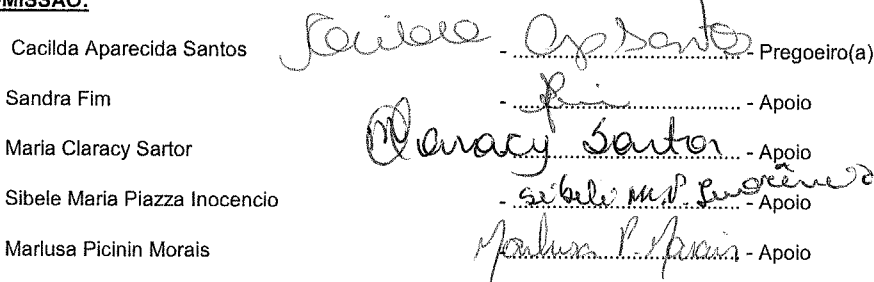 MISSÃO:
Cacilda Aparecida Santos Cacilda Ap Santos - ........ - Pregoeiro(a)
Sandra Fim - Fim ........ - Apoio
Maria Claracy Sartor M Claracy Sartor ........ - Apoio
Sibele Maria Piazza Inocencio - Sibele M. P. Inocêncio ........ - Apoio
Marlusa Picinin Morais Marlusa P. Morais ........ - Apoio